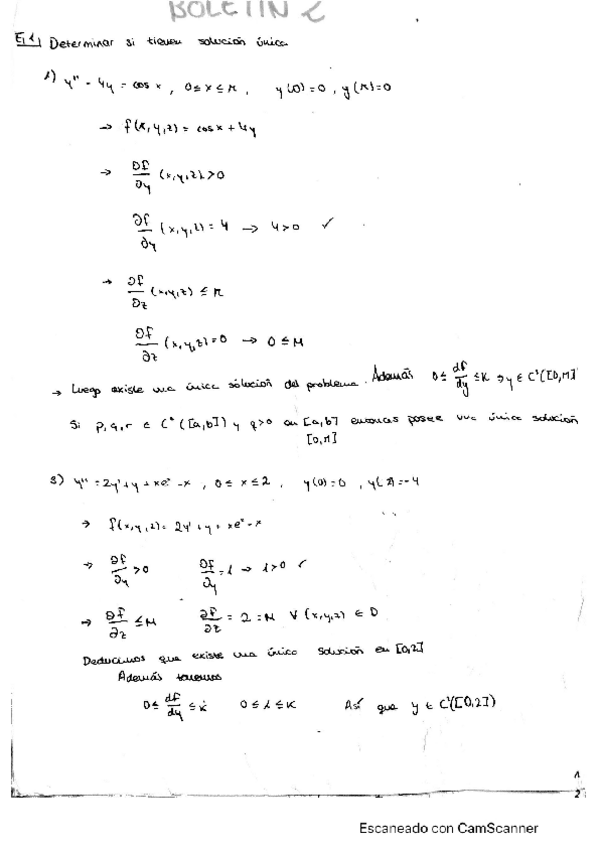 BOLETIN 2
Ej 1, Determinar si tienen solución única
1) y'' - 4y = cos x, 0 ≤ x ≤ π, y(0)=0, y(π)=0
→ f(x,y,z) = cos x + 4y
→ ∂f/∂y (x,y,z) > 0
∂f/∂y (x,y,z) = 4 → 4>0 ✓
→ ∂f/∂z (x,y,z) ≤ M
∂f/∂z (x,y,z)=0 → 0 ≤ M
→ Luego existe una única solución del problema. Además 0 ≤ df/dy ≤ K → y ∈ C¹([0,π]
Si p,q,r ∈ C⁰([a,b]) y q>0 en [a,b] entonces posee una única solución
[0,π]
3) y'' = 2y' + y + xeˣ - x, 0 ≤ x ≤ 2, y(0)=0, y(2)=-4
→ f(x,y,z) = 2y' + y + xeˣ - x
→ ∂f/∂y > 0 ∂f/∂y = 1 → 1>0 ✓
→ ∂f/∂z ≤ M ∂f/∂z = 2 = M ∀ (x,y,z) ∈ D
Deducimos que existe una única solución en [0,2]
Además tenemos
0 ≤ df/dy ≤ k 0 ≤ 1 ≤ K Así que y ∈ C¹([0,2])
1
2
Escaneado con CamScanner